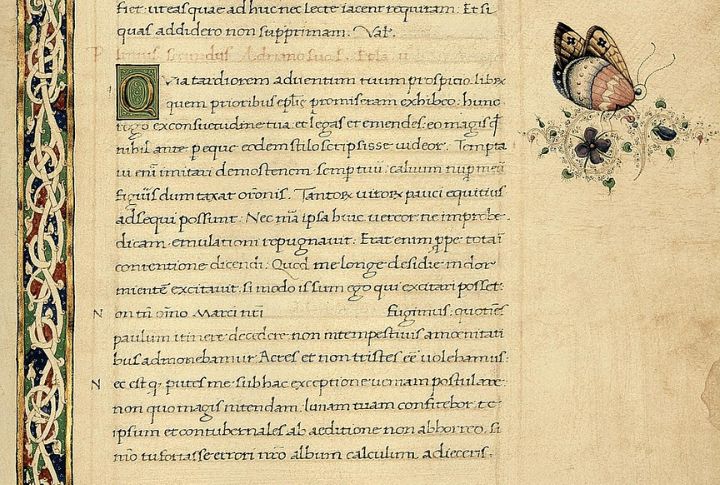 fiet, ut eas quae ad huc nec lecte iacent requiram. Et si
quas addidero non supprimam. Val̄.
Plinius secundus Adriano suo s. Epl̄a ii
QVia tardiorem adventum tuum prospicio. libꝝ
quem prioribus epl̄is promiseram exhibeo: hunc
rogo ex consuetudine tua et legas et emendes: eo magis q̄
nihil ante peque eodem stilo scripsisse videor. Tempta
vi enī imitari demostenem semp̄ tuū: calvum nup̄ meū
figuris dum taxat orōnis. Tantoꝝ viroꝝ pauci equitius
adsequi possunt: Nec mā ipsa huic vereor ne improbe
dicam, emulationi repugnavit. Erat enim p̄pe tota ī
contentione dicendi. Quod me longe desidie indor
mientē excitavit, si modo is sum ego qui excitari posset
N on tn̄ oīno Marci nr̄i fugimus: quotiēs
paulum itinere decedere non intempestivis amoenitati
bus admonebamur. Acres eī non tristes eē volebamus:
N ec est q. putes me sub hac exceptione veniam postulare:
non quo magis intendam limam tuam confitebor, et
ipsum et contubernales ab aeditione non abhorreo, si
mō tu fortasse errori nr̄o album calculum adieceris.